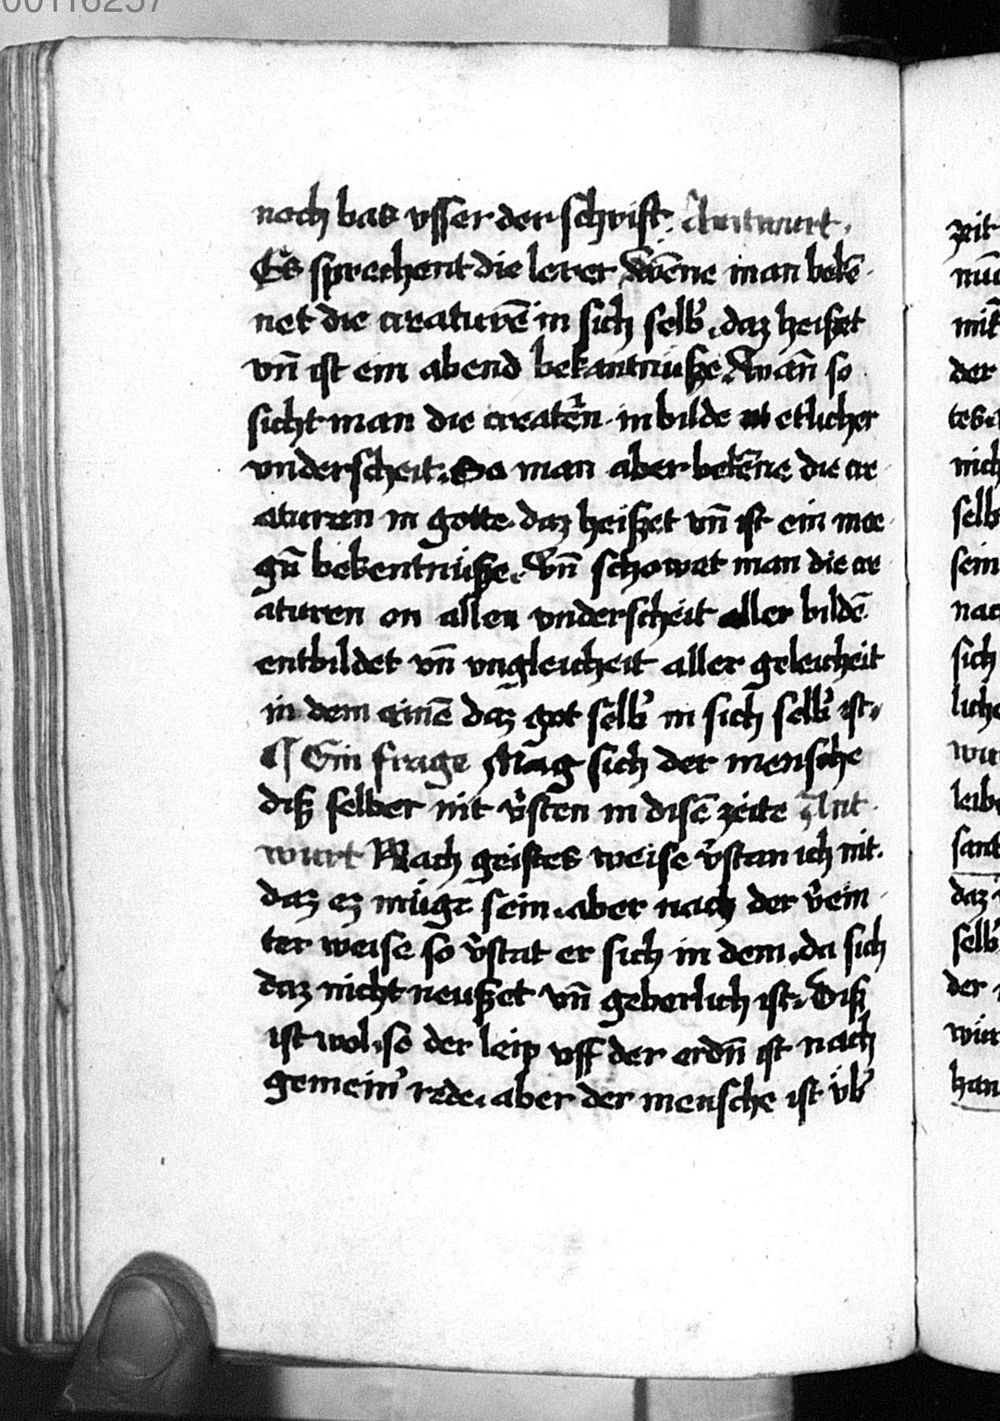 00116257
noch bas vsser der schrift. Antwurt.
Es sprechent die lerer Wēne man bekē
net die creaturē in sich selb’. daz heißet
vn̄ ist ein abend bekantnüße. Wan̄ so
sicht man die creatẽn in bilde etlicher
vnderscheit. So man aber bekēne die cre
aturen in gotte. daz heißet vn̄ ist ein mor
gū bekentnüße. Vn̄ schowet man die cre
aturen on allen vnderscheit aller bildē
entbildet vn̄ vngleicheit aller geleicheit
in dem einē daz got selb’ in sich selb’ ist.
¶ Ein frage Mag sich der mensche
diß selber nit v’sten in disē zeite Ant
wurt Nach geistes weise v’stan ich nit.
daz ez müge sein. aber nach der v’ein
ter weise so v’stat er sich in dem. da sich
daz nicht neußet vn̄ geberlich ist. Diß
ist wol. so der leip vff der erdn̄ ist nach
gemein’ rede. aber der mensche ist üb’
zeit
nūe
mit
der
tes
nich
selb
sein
nac
sich
liche
wur
leibe
sant
daz
selb
der
wir
han